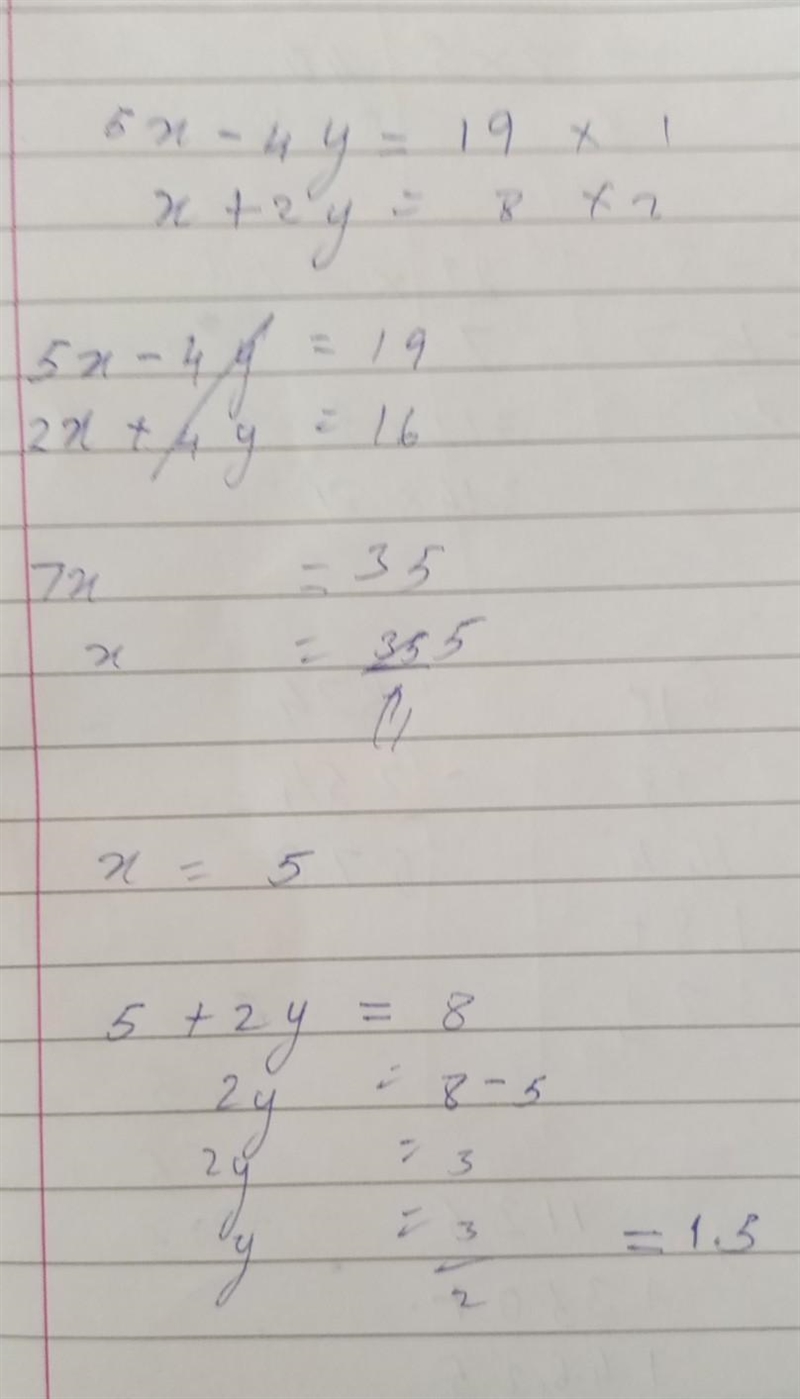 5x - 4y = 19 × 1
x + 2y = 8 × 2
5x - 4y = 19
2x + 4y = 16
7x = 35
x = 35 5
x = 5
5 + 2y = 8
2y = 8 - 5
2y = 3
y = 3/2 = 1.5